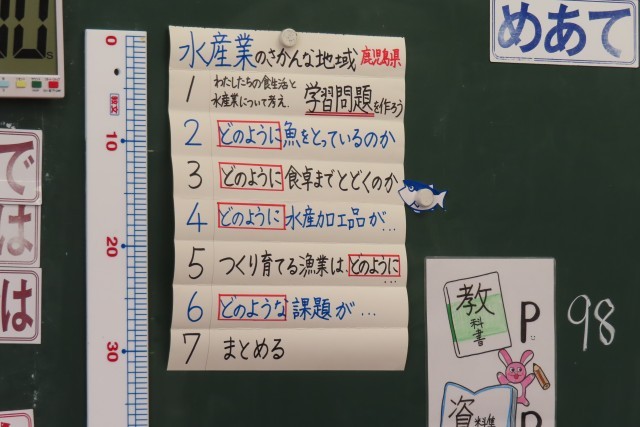 めあて
水産業のさかんな地域 鹿児島県
1 わたしたちの食生活と
水産業について考え、学習問題を作ろう
2 どのように魚をとっているのか
3 どのように食卓までとどくのか
4 どのように水産加工品が…
5 つくり育てる漁業は、どのように…
6 どのような課題が…
7 まとめる
0
10
20
30
教科書 P 98
資料集 P
で
は
は